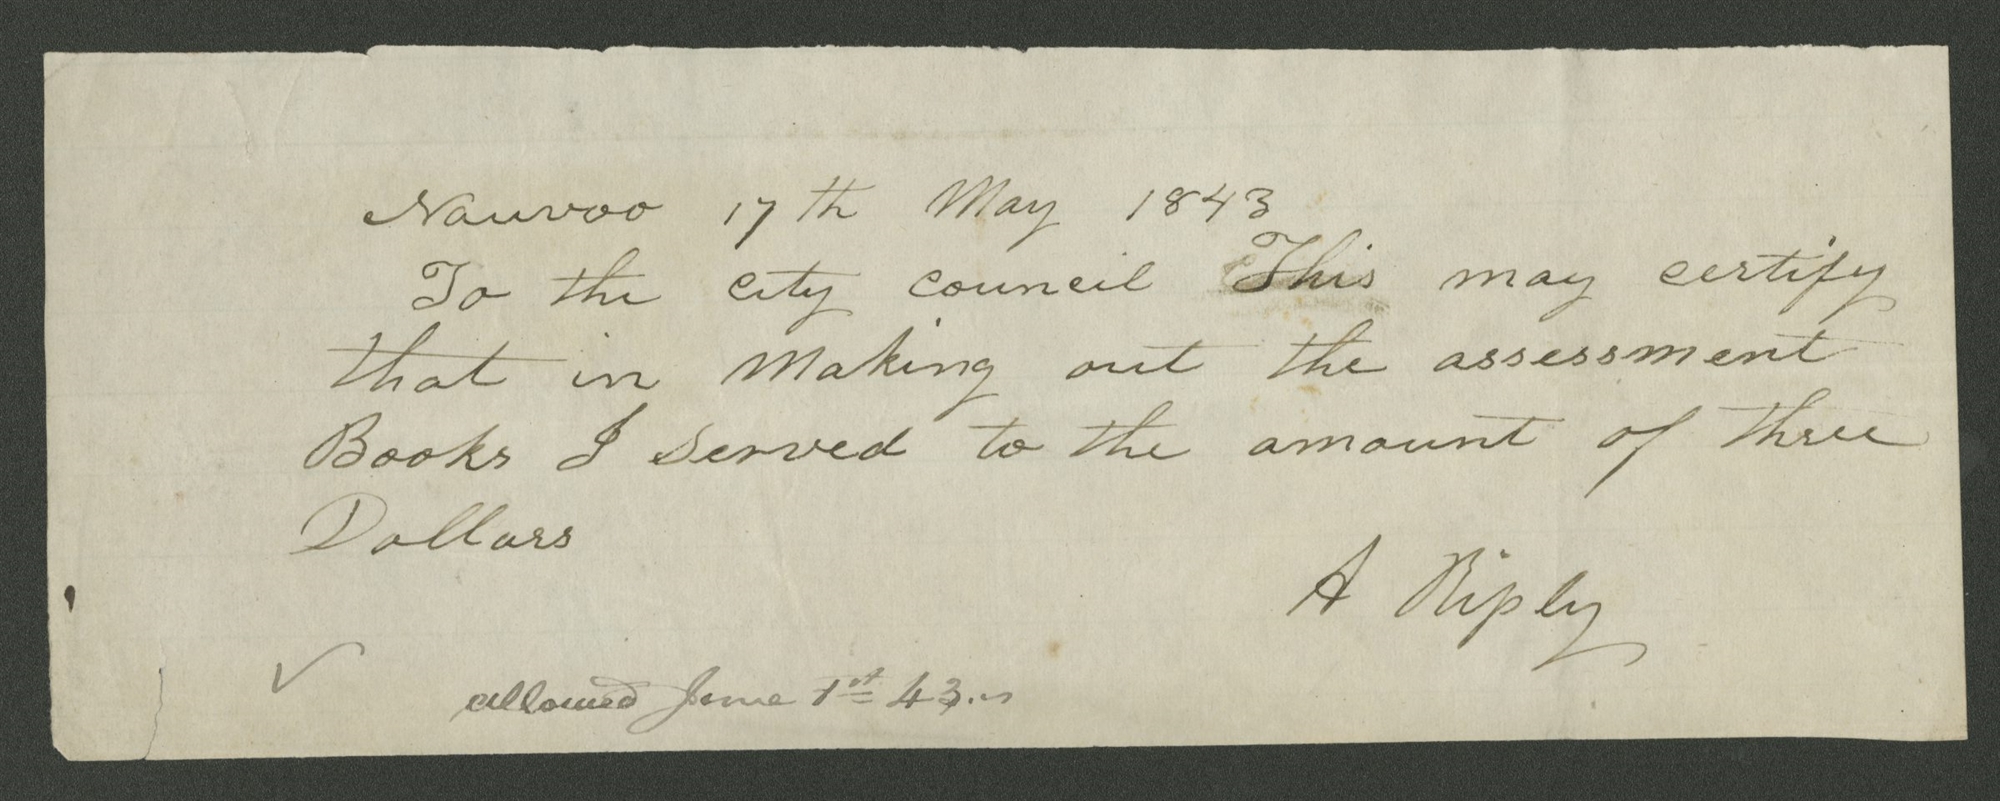 Nauvoo 17th May 1843
To the city council This may certify
that in Making out the assessment
Books I served to the amount of three
Dollars
A Riply
✓
allowed June 1st 43.